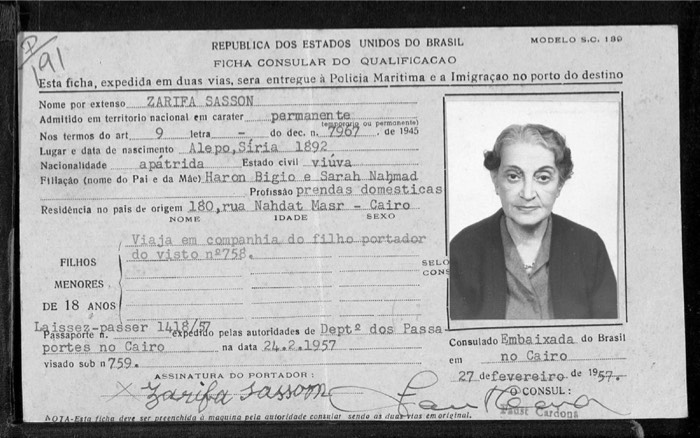 P/191
REPUBLICA DOS ESTADOS UNIDOS DO BRASIL MODELO S.C. 139
FICHA CONSULAR DO QUALIFICACAO
Esta ficha, expedida em duas vias, sera entregue à Policia Maritima e a Imigraçao no porto do destino
Nome por extenso ZARIFA SASSON
Admitido em territorio nacional em carater permanente
(temporario ou permanente)
Nos termos do art. 9 letra - do dec. n. 7967 . de 1945
Lugar e data de nascimento Alepo,Síria 1892
Nacionalidade apátrida Estado civil viúva
Filiação (nome do Pai e da Mãe) Haron Bigio e Sarah Nahmad
Profissão prendas domesticas
Residência no pais de origem 180,rua Nahdat Masr - Cairo
NOME IDADE SEXO
FILHOS MENORES DE 18 ANOS
Viaja em companhia do filho portador
do visto nº758.
SELO
CONS
Laissez-passer 1418/57
Passaporte n. expedido pelas autoridades de Deptº dos Passa
portes no Cairo na data 24.2.1957
visado sub n 759.
Consulado Embaixada do Brasil
em no Cairo
27 de fevereiro de 1957.
ASSINATURA DO PORTADOR :
O CONSUL :
X Zarifa Sassom
Faust Cardona
NOTA-Esta ficha deve ser preenchida à maquina pela autoridade consular, sendo as duas vias em original.